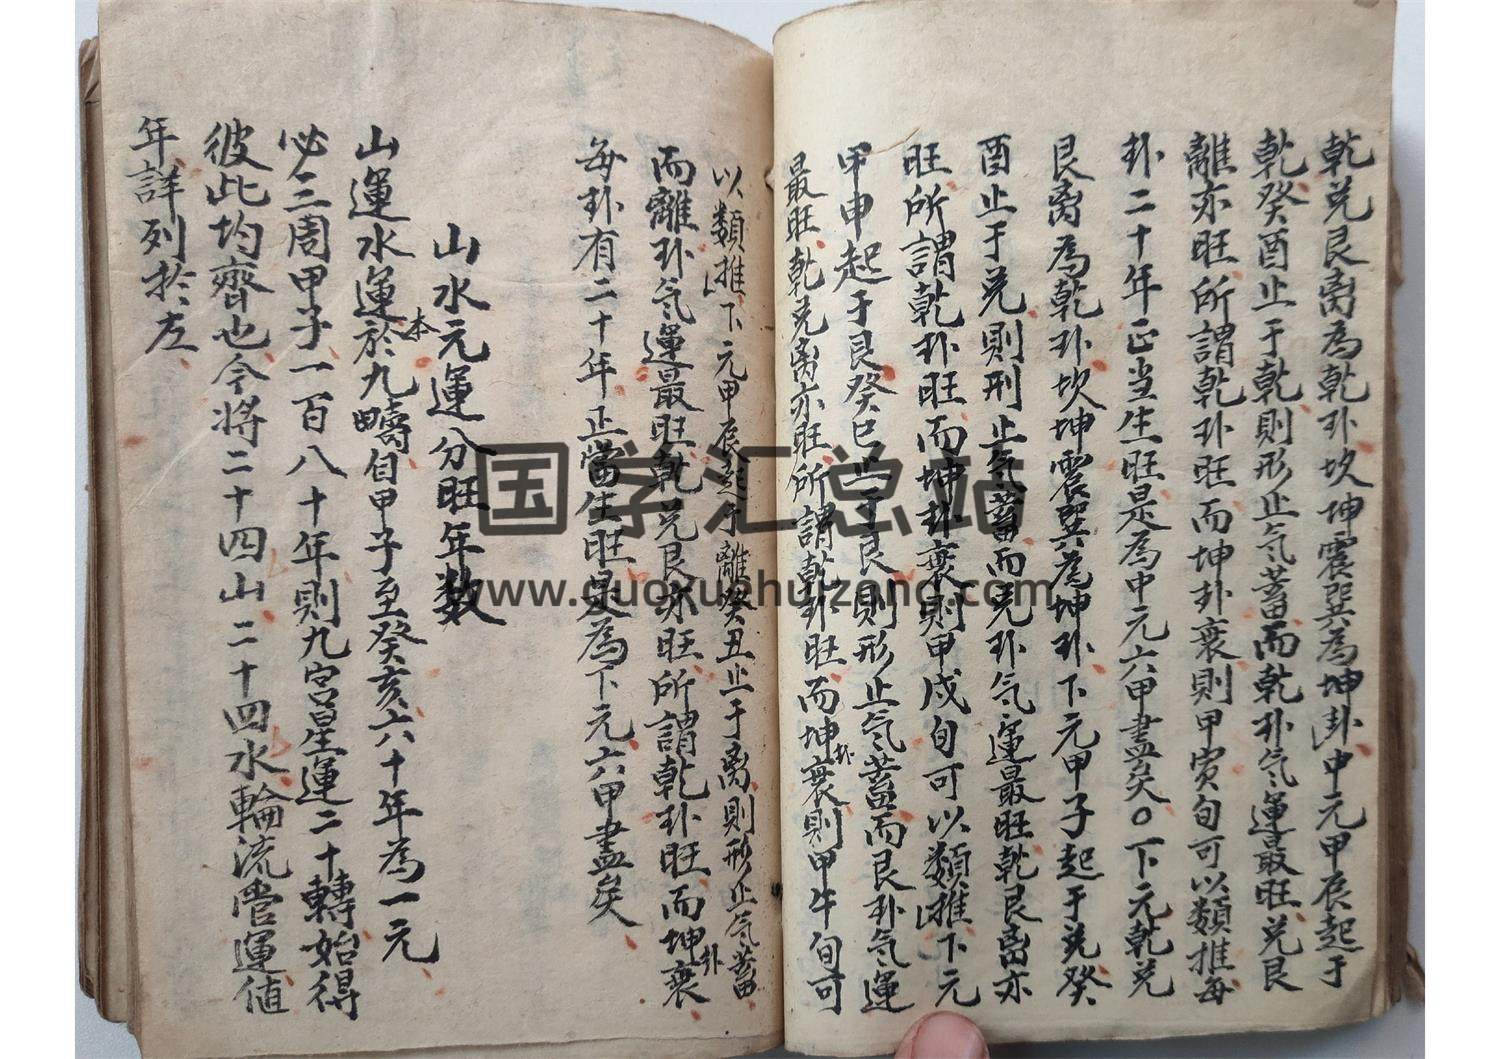 乾兑艮离為乾卦坎坤震巽為坤卦中元甲辰起于
乾癸酉止于乾則形止气蓄而乾卦气運最旺兑艮
離亦旺所謂乾卦旺而坤卦衰則甲寅旬可以類推每
卦二十年正当生旺是為中元六甲盡矣○下元乾兑
艮离為乾卦坎坤震巽為坤卦下元甲子起于兑癸
酉止于兑則刑止气蓄而兑卦气運最旺乾艮离亦
旺所謂乾卦旺而坤卦衰則甲戌旬可以類推下元
甲申起于艮癸巳止于艮則形止气蓄而艮卦气運
最旺乾兑离亦旺所謂乾卦旺而坤卦衰則甲午旬可
以類推下元甲辰起于離癸丑止于离則形止气蓄
而離卦气運最旺乾兑艮亦旺所謂乾卦旺而坤卦衰
每卦有二十年正當生旺是為下元六甲盡矣
山水元運分旺年数
山運水運本於九疇自甲子至癸亥六十年為一元
必三周甲子一百八十年則九宮星運二十轉始得
彼此均齊也今将二十四山二十四水輪流管運值
年詳列於左
国学汇总站
www.guoxuehuizong.com